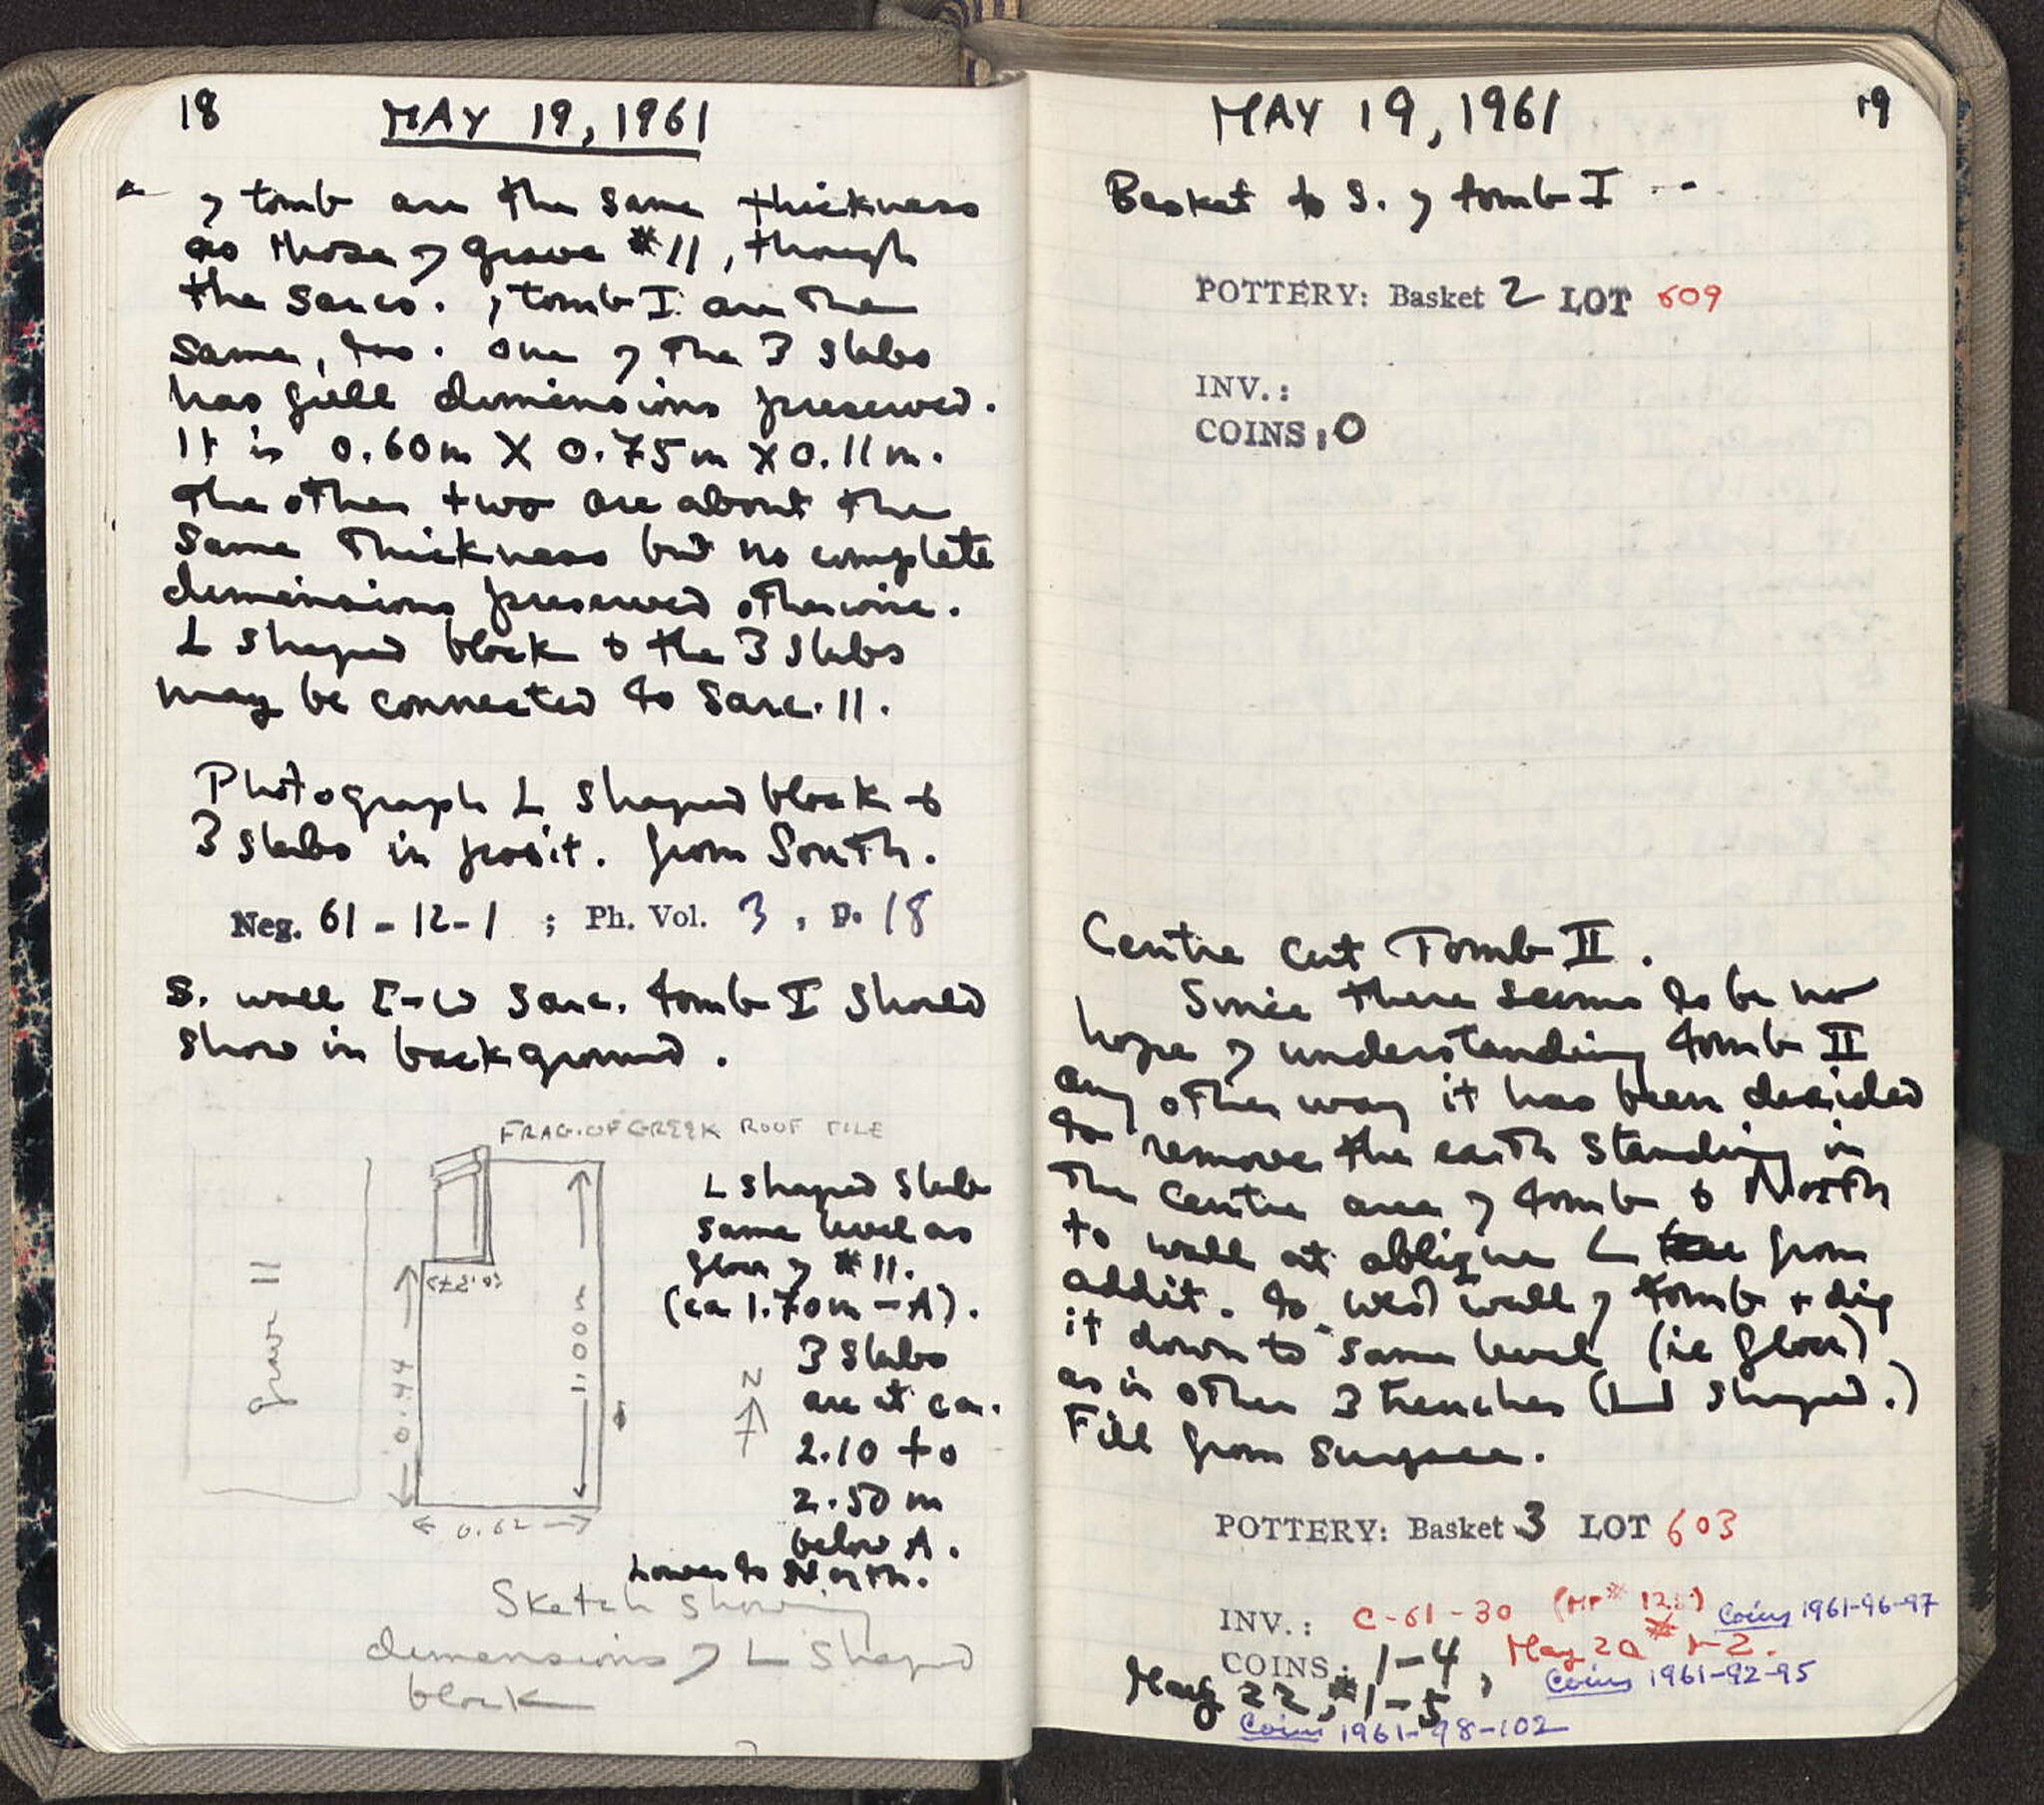 18 MAY 19, 1961
of tomb are the same thickness
as those of grave #11, though
the sarco. of tomb I are the
same, too. One of the 3 slabs
has full dimensions preserved.
It is 0.60m X 0.75m X 0.11m.
The other two are about the
same thickness but no complete
dimensions preserved otherwise.
L shaped block & the 3 slabs
may be connected to Sarc. 11.
Photograph L shaped block &
3 slabs in posit. from South.
Neg. 61-12-1 ; Ph. Vol. 3, p. 18
S. wall E-W Sarc. tomb I should
show in background.
FRAG. OF GREEK ROOF TILE
grave 11
0.44
1.00m
0.62
N
L shaped slab
same level as
floor of #11.
(ca 1.70m - A).
3 slabs
are at ca.
2.10 to
2.50 m
below A.
Lower to North.
Sketch showing
dimensions of L shaped
block
MAY 19, 1961 19
Basket to S. of tomb I --
POTTERY: Basket 2 LOT 609
INV.:
COINS: 0
Centre Cut Tomb II.
Since there seems to be no
hope of understanding tomb II
any other way it has been decided
to remove the earth standing in
the centre area of tomb & North
to wall at oblique L from
addit. to West wall of tomb + dig
it down to same level (ie floor)
as in other 3 trenches (⊔ shaped.)
Fill from surface.
POTTERY: Basket 3 LOT 603
INV.: C-61-30 Coins 1961-96-97
COINS: 1-4, May 20 # 1-2.
Coins 1961-92-95
May 22, # 1-5
Coins 1961-98-102